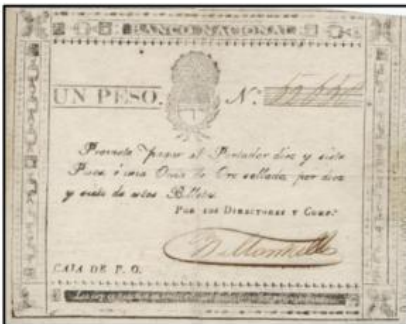 BANCO NACIONAL
UN PESO. N.º
Promete pagar al Portador diez y siete
Pesos ó una Onza de Oro sellada, por diez
y siete de estos Billetes.
POR LOS DIRECTORES Y COMP.ª
CAJA DE P. O.